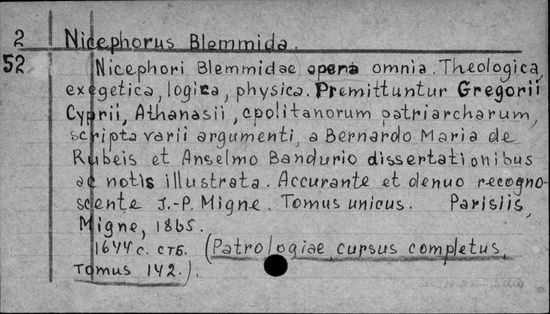 2 Nicephorus Blemmida.
52 Nicephori Blemmidae opera omnia. Theologica,
exegetica, logica, physica. Premittuntur Gregorii
Cyprii, Athanasii, cpolitanorum patriarcharum,
scripta varii argumenti, a Bernardo Maria de
Rubeis et Anselmo Bandurio dissertationibus
ac notis illustrata. Accurante et denuo recogno-
scente J.-P. Migne. Tomus unicus. Parisiis,
Migne, 1865.
1644 с. стб. (Patrologiae cursus completus,
Tomus 142.).